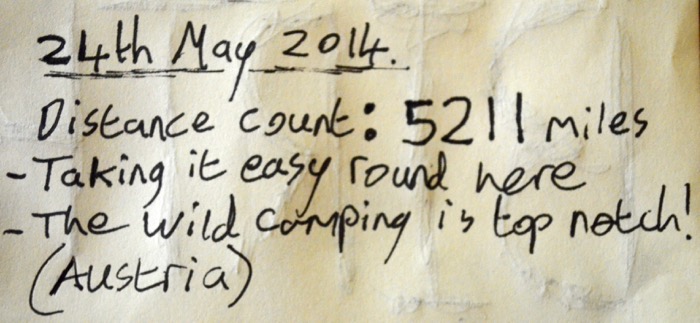 24th May 2014.
Distance count: 5211 miles
- Taking it easy round here
- The wild camping is top notch!
(Austria)